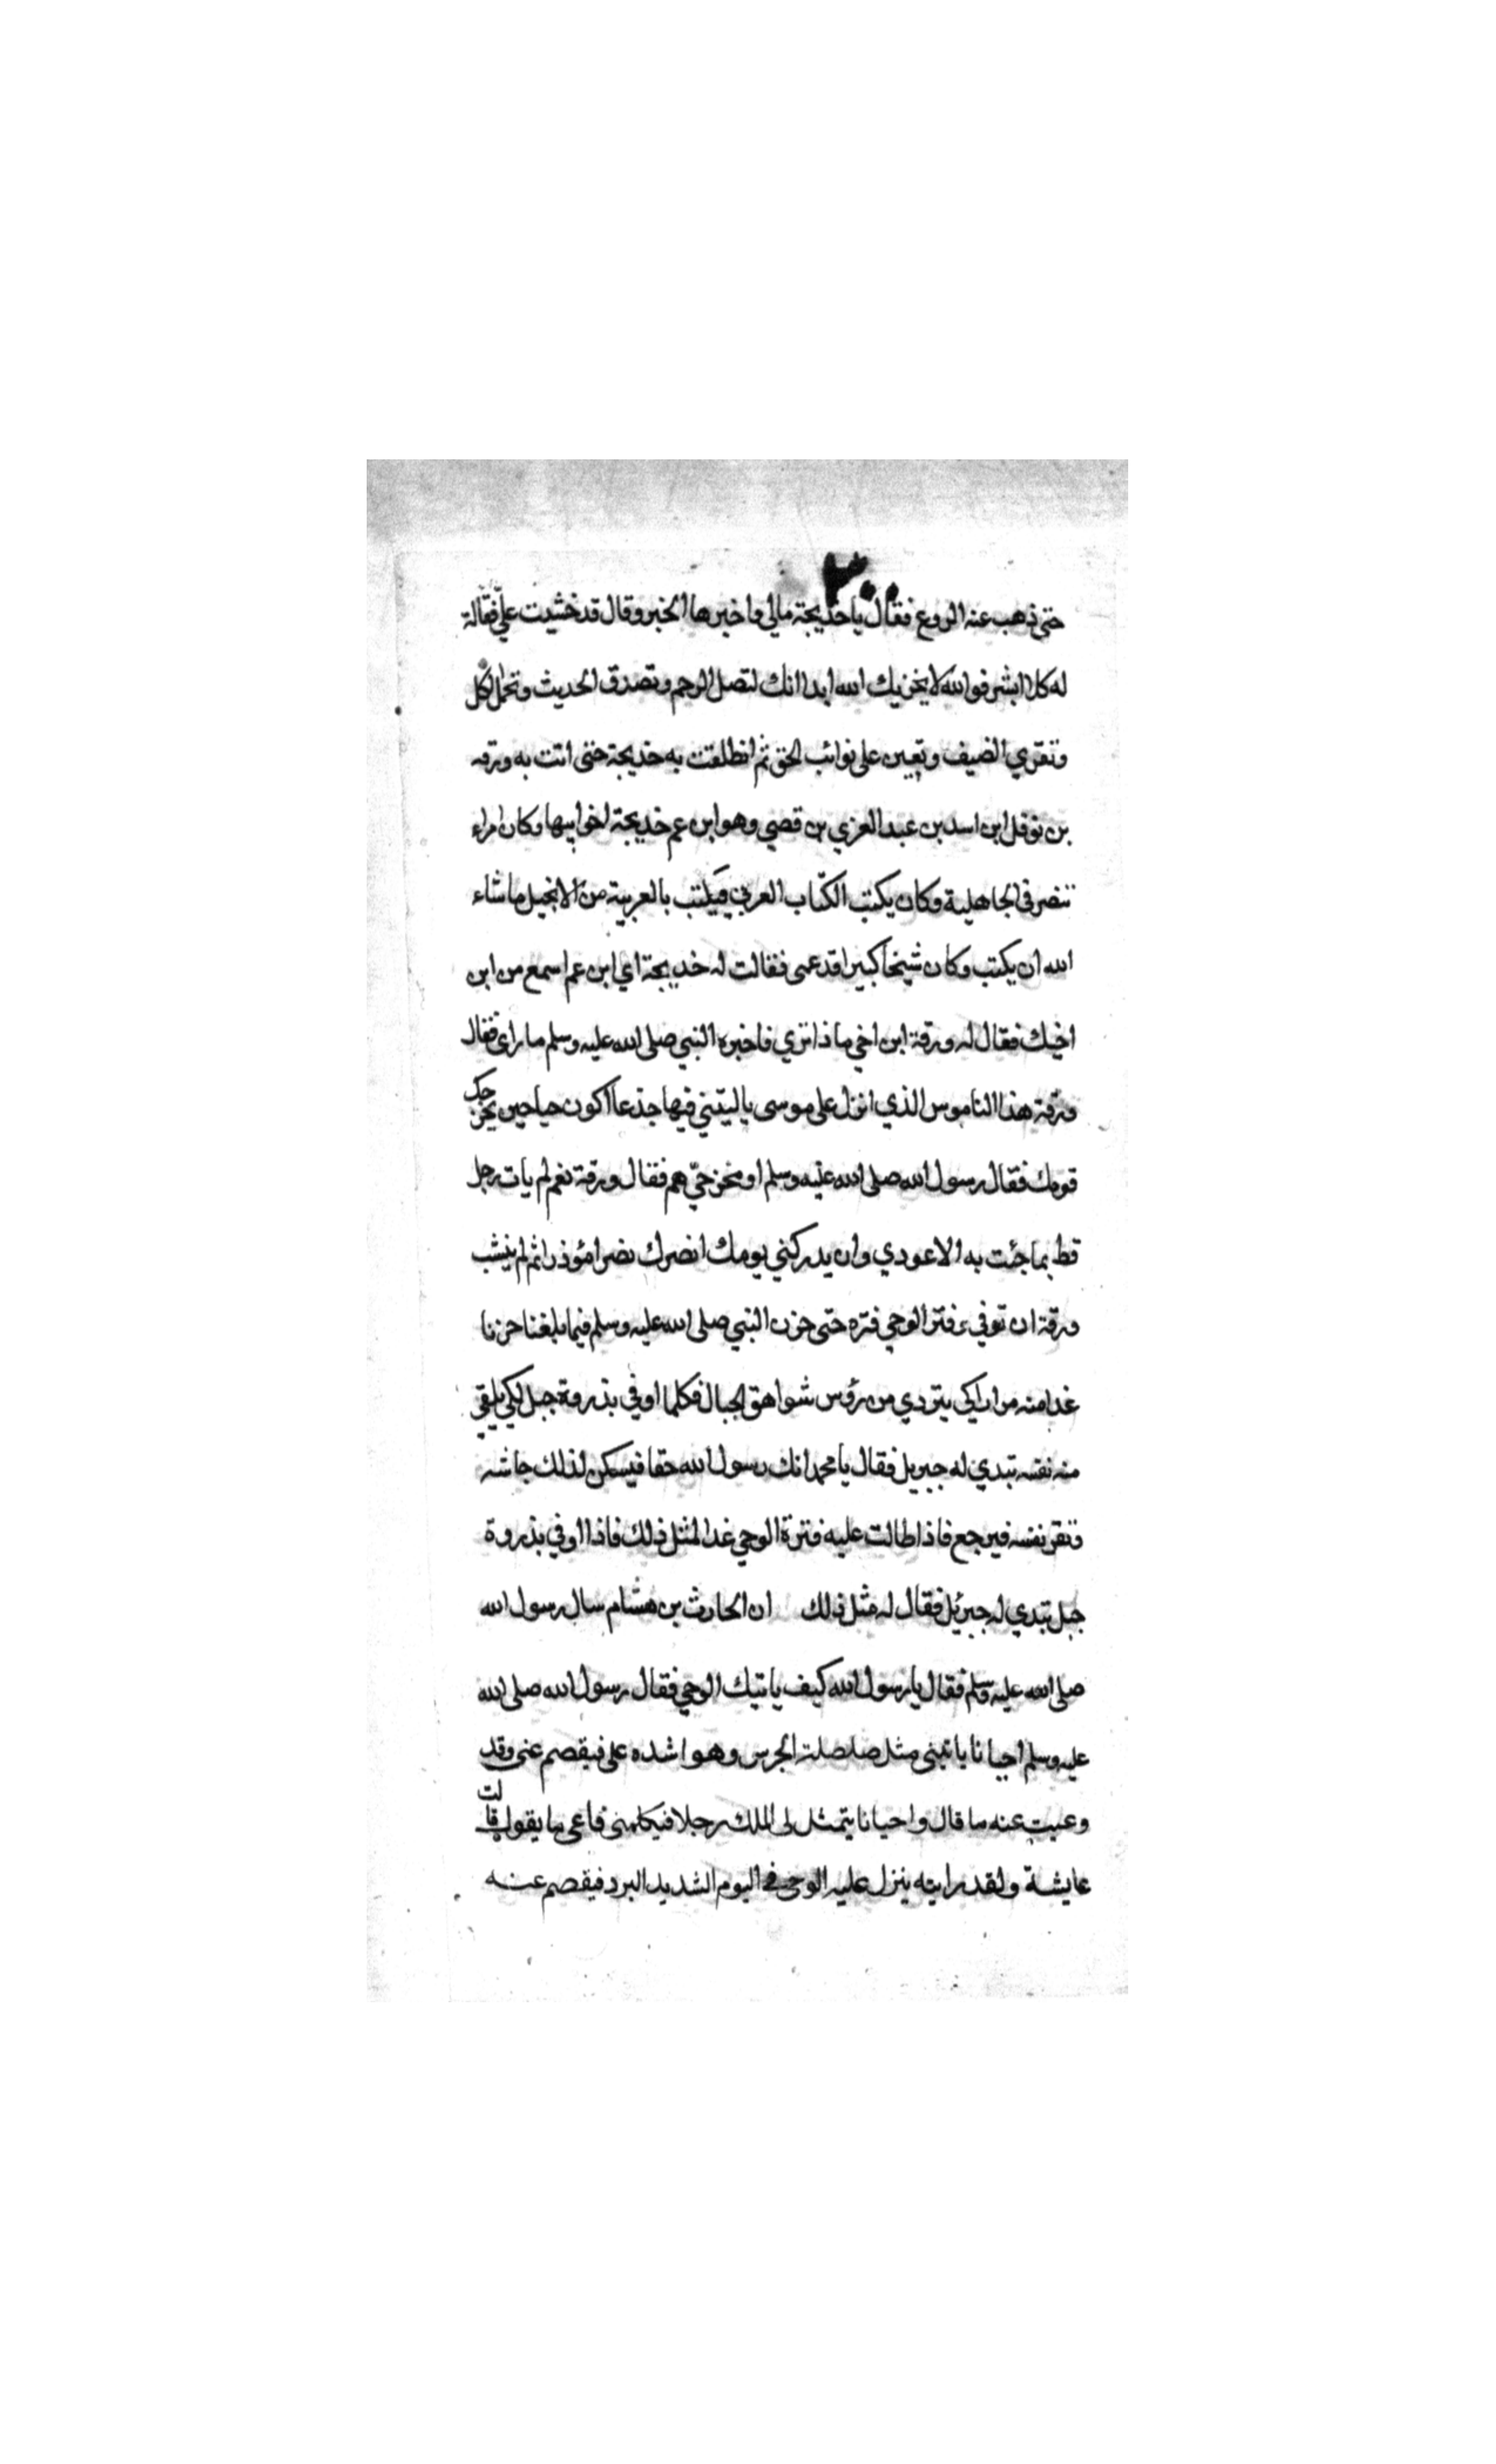 ٣٠٠
حتى ذهب عنه الروع فقال يا خديجة مالي واخبرها الخبر وقال قد خشيت علي فقالة
له كلا ابشر فوالله لا يخزيك الله ابدا انك لتصل الرحم وتصدق الحديث وتحمل الكل
وتقري الضيف وتعين على نوائب الحق ثم انطلقت به خديجة حتى اتت به ورقه
بن نوفل ابن اسد بن عبد العزي بن قصي وهو ابن عم خديجة اخو ابيها وكان امراء
تنصر في الجاهلية وكان يكتب الكتاب العربي فيكتب بالعربية من الانجيل ما شاء
الله ان يكتب وكان شيخا كبيرا قد عمى فقالت له خديجة اي ابن عم اسمع من ابن
اخيك فقال له ورقة ابن اخي ماذا تري فاخبره النبي صلى الله عليه وسلم ما راى فقال
ورقة هذا الناموس الذي انزل على موسى يا ليتني فيها جذعا اكون حيا حين يخرجك
قومك فقال رسول الله صلى الله عليه وسلم او مخرجيّ هم فقال ورقة نعم لم يات رجل
قط بما جئت به الا عودي وان يدركني يومك انصرك نصرا مؤذرا ثم لم ينشب
ورقة ان توفي وفتر الوحي فتره حتى حزن النبي صلى الله عليه وسلم فيما بلغنا حزنا
غدا منه مرارا كي يتردي من رؤس شواهق الجبال فكلما اوفي بذروة جبل لكي يلقي
منه نفسه تبدي له جبريل فقال يا محمد انك رسول الله حقا فيسكن لذلك جاشه
وتقر نفسه فيرجع فاذا طالت عليه فترة الوحي غدا لمثل ذلك فاذا اوفي بذروة
جبل تبدي له جبرئيل فقال له مثل ذلك ان الحارث بن هشام سال رسول الله
صلى الله عليه وسلم فقال يا رسول الله كيف ياتيك الوحي فقال رسول الله صلى الله
عليه وسلم احيانا ياتينى مثل صلصلة الجرس وهو اشده على فيفصم عنى وقد
وعيت عنه ما قال واحيانا يتمثل لى الملك رجلا فيكلمنى فاعى ما يقول قالت
عايشة ولقد رايته ينزل عليه الوحى فى اليوم الشديد البرد فيفصم عنه